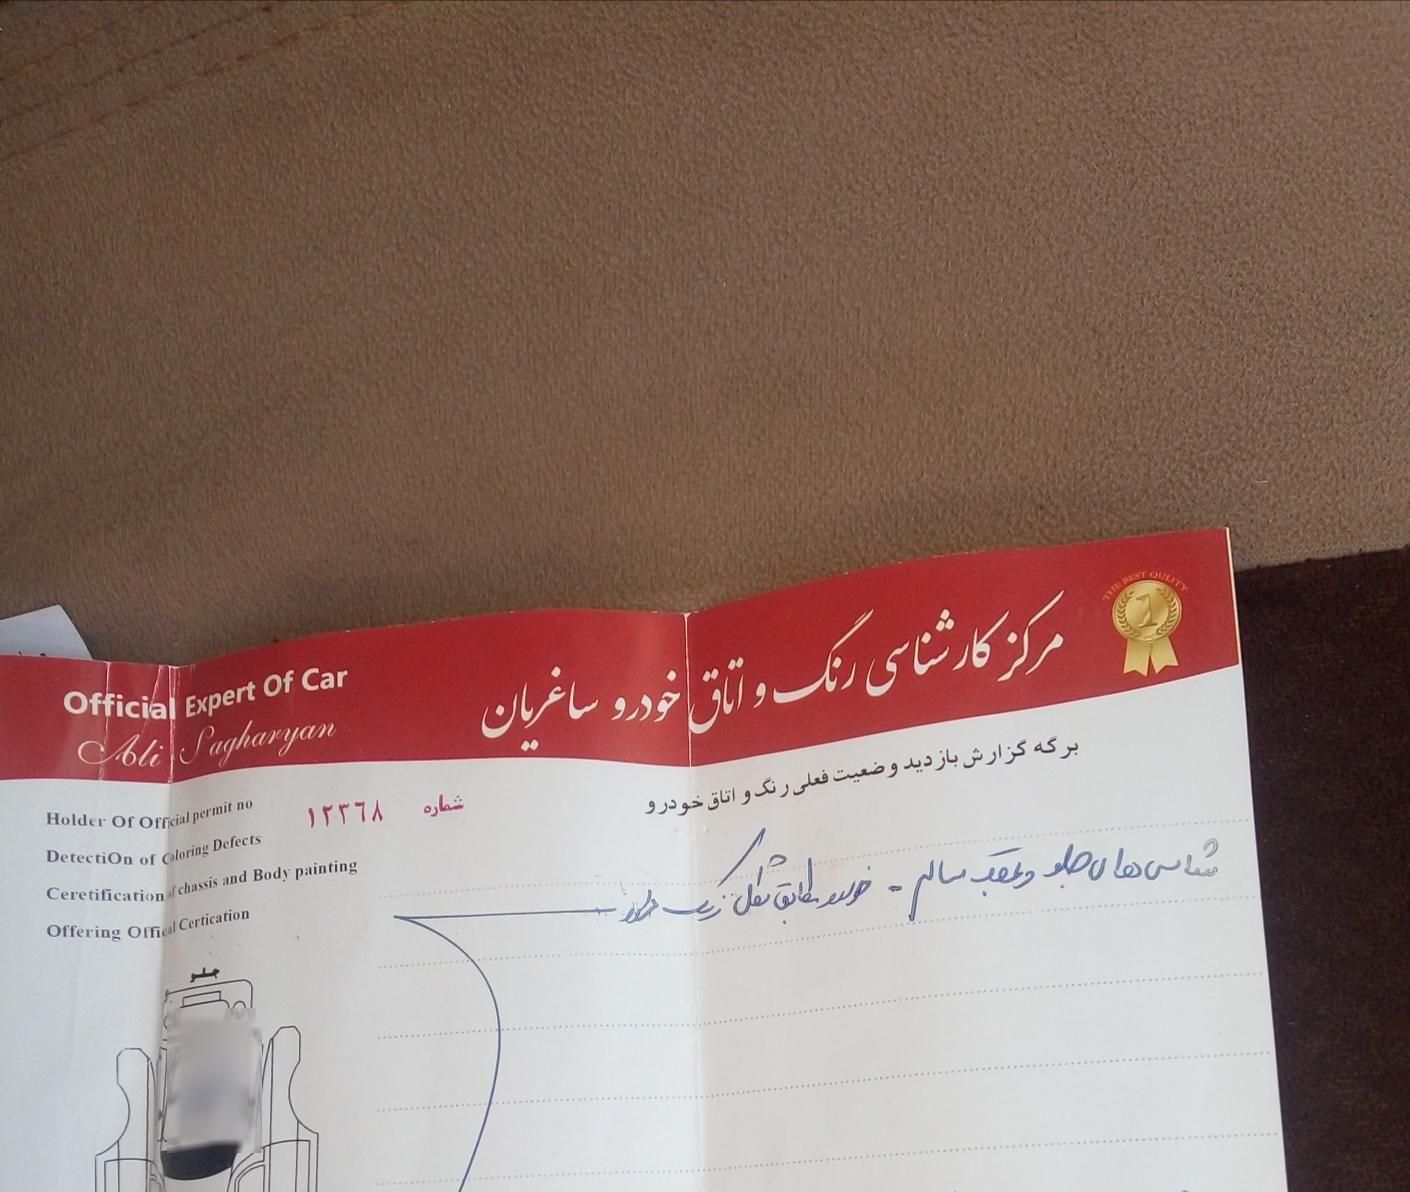 THE BEST QULITY
1
مرکز کارشناسی رنگ و اتاق خودرو ساغریان
Official Expert Of Car
Ali Sagharyan
برگه گزارش بازدید وضعیت فعلی رنگ و اتاق خودرو
شماره ۱۲۳۶۸
Holder Of Official permit no
DetectiOn of Coloring Defects
Ceretification of chassis and Body painting
Offering Offical Certication
شاسی های جلو و عقب سالم - خودرو مطابق شکل رنگ دارد
جلو